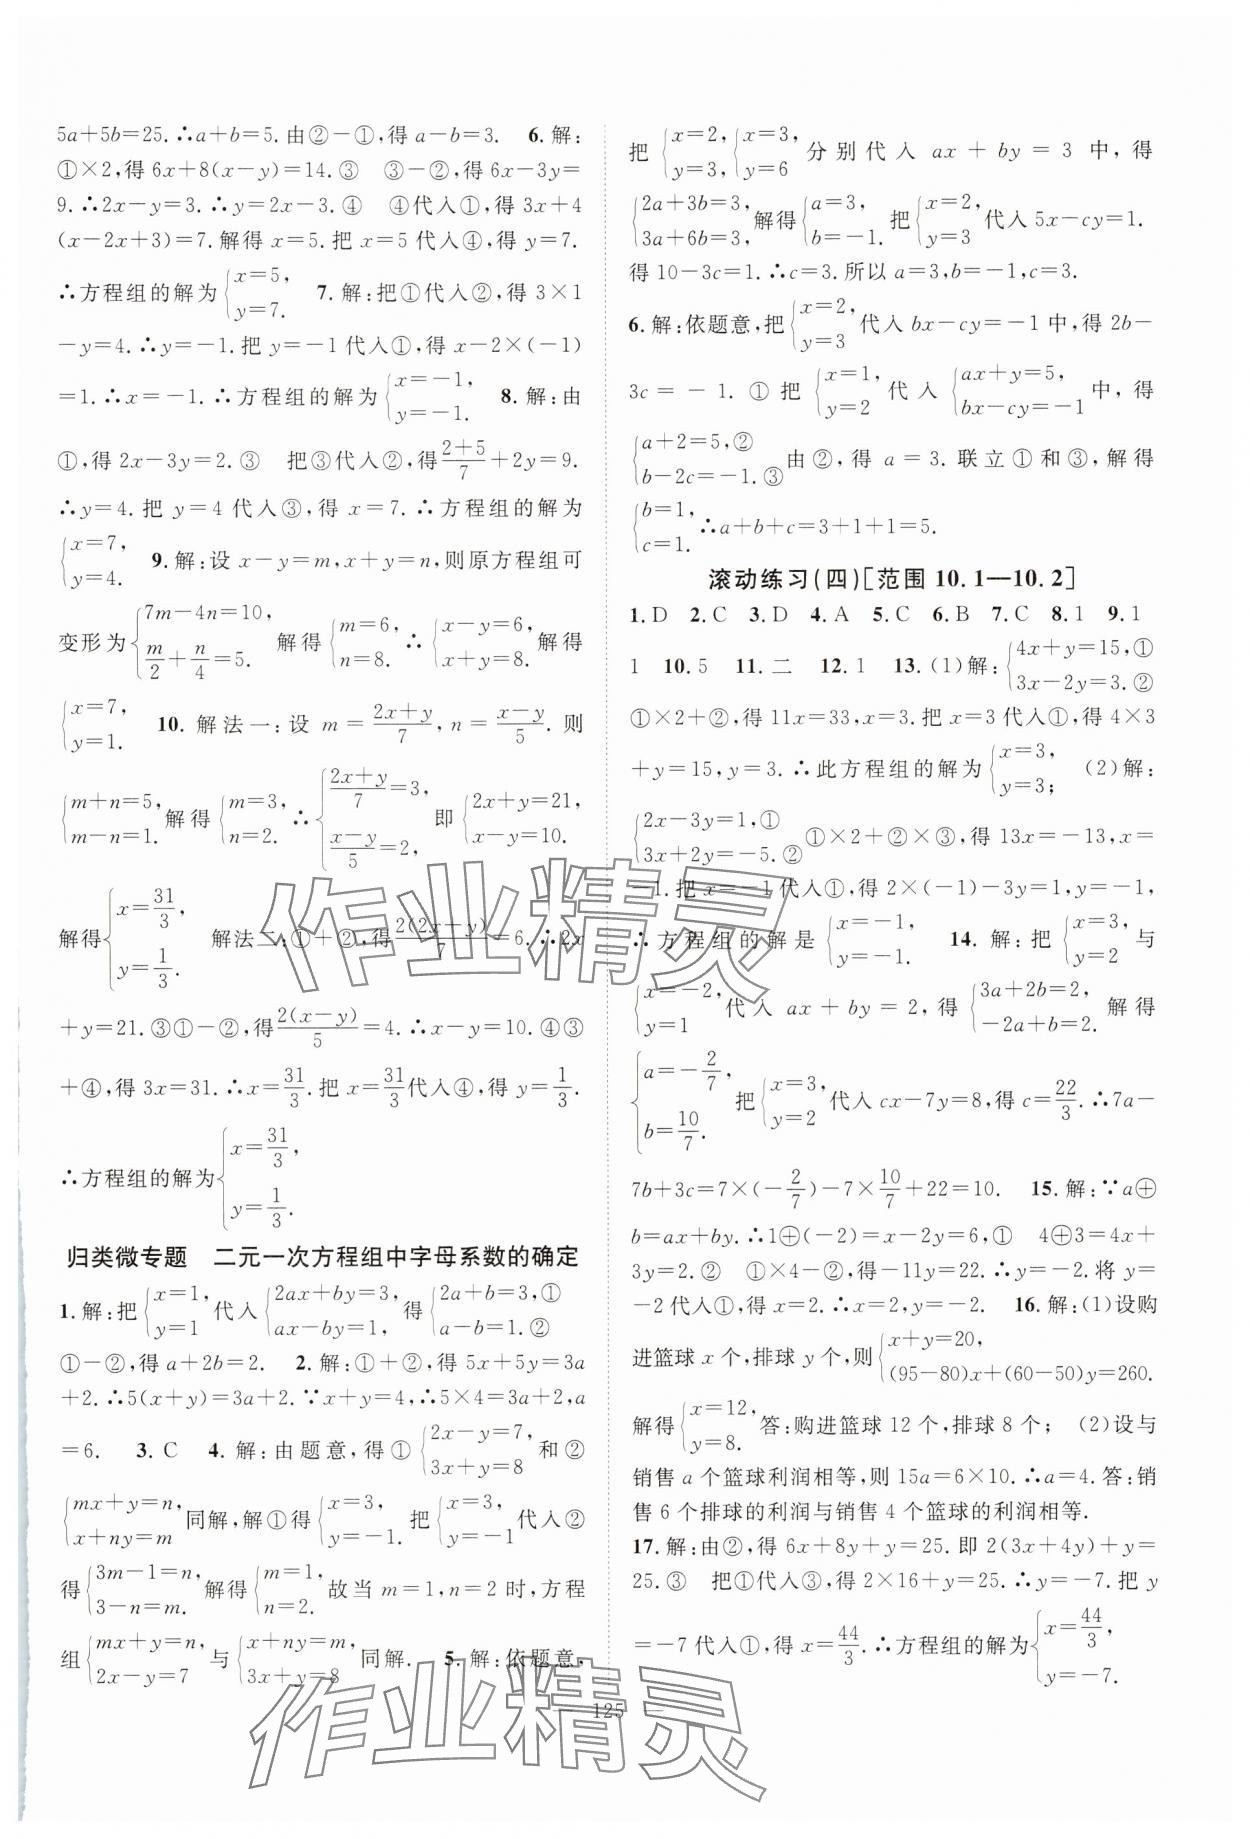 5a+5b=25.∴a+b=5.由②-①,得 a-b=3. 6.解:
①×2,得 6x+8(x-y)=14.③ ③-②,得 6x-3y=
9.∴2x-y=3.∴y=2x-3.④ ④代入①,得 3x+4
(x-2x+3)=7.解得 x=5.把 x=5 代入④,得 y=7.
∴方程组的解为{x=5, y=7. 7.解:把①代入②,得 3×1
-y=4.∴y=-1.把 y=-1 代入①,得 x-2×(-1)
=1.∴x=-1.∴方程组的解为{x=-1, y=-1. 8.解:由
①,得 2x-3y=2.③ 把③代入②,得(2+5)/7+2y=9.
∴y=4.把 y=4 代入③,得 x=7.∴方程组的解为
{x=7, y=4. 9.解:设 x-y=m,x+y=n,则原方程组可
变形为{7m-4n=10, m/2+n/4=5. 解得{m=6, n=8. ∴{x-y=6, x+y=8. 解得
{x=7, y=1. 10.解法一:设 m=(2x+y)/7,n=(x-y)/5. 则
{m+n=5, m-n=1. 解得{m=3, n=2. ∴{(2x+y)/7=3, (x-y)/5=2, 即{2x+y=21, x-y=10.
解得{x=31/3, y=1/3. 解法二:①+②,得2(2x+y)/7=6.∴2x
+y=21.③①-②,得2(x-y)/5=4.∴x-y=10.④③
+④,得 3x=31.∴x=31/3.把 x=31/3代入④,得 y=1/3.
∴方程组的解为{x=31/3, y=1/3.
归类微专题 二元一次方程组中字母系数的确定
1.解:把{x=1, y=1 代入{2ax+by=3, ax-by=1, 得{2a+b=3,① a-b=1.②
①-②,得 a+2b=2. 2.解:①+②,得 5x+5y=3a
+2.∴5(x+y)=3a+2.∵x+y=4,∴5×4=3a+2,a
=6. 3.C 4.解:由题意,得①{2x-y=7, 3x+y=8 和②
{mx+y=n, x+ny=m 同解,解①得{x=3, y=-1. 把{x=3, y=-1 代入②
得{3m-1=n, 3-n=m. 解得{m=1, n=2. 故当 m=1,n=2 时,方程
组{mx+y=n, 2x-y=7 与{x+ny=m, 3x+y=8 同解. 5.解:依题意,
把{x=2, y=3, {x=3, y=6 分别代入 ax+by=3 中,得
{2a+3b=3, 3a+6b=3, 解得{a=3, b=-1. 把{x=2, y=3 代入 5x-cy=1.
得 10-3c=1.∴c=3.所以 a=3,b=-1,c=3.
6.解:依题意,把{x=2, y=3 代入 bx-cy=-1 中,得 2b-
3c=-1.① 把{x=1, y=2 代入{ax+y=5, bx-cy=-1 中,得
{a+2=5,② b-2c=-1.③ 由②,得 a=3.联立①和③,解得
{b=1, c=1. ∴a+b+c=3+1+1=5.
滚动练习(四)[范围 10.1—10.2]
1.D 2.C 3.D 4.A 5.C 6.B 7.C 8.1 9.1
1 10.5 11.二 12.1 13.(1)解:{4x+y=15,① 3x-2y=3.②
①×2+②,得 11x=33,x=3.把 x=3 代入①,得 4×3
+y=15,y=3.∴此方程组的解为{x=3, y=3; (2)解:
{2x-3y=1,① 3x+2y=-5.② ①×2+②×③,得 13x=-13,x=
-1.把 x=-1 代入①,得 2×(-1)-3y=1,y=-1,
∴方程组的解是{x=-1, y=-1. 14.解:把{x=3, y=2 与
{x=-2, y=1 代入 ax+by=2,得{3a+2b=2, -2a+b=2. 解得
{a=-2/7, b=10/7. 把{x=3, y=2 代入 cx-7y=8,得 c=22/3.∴7a-
7b+3c=7×(-2/7)-7×10/7+22=10. 15.解:∵a⊕
b=ax+by.∴1⊕(-2)=x-2y=6,① 4⊕3=4x+
3y=2.② ①×4-②,得-11y=22.∴y=-2.将 y=
-2 代入①,得 x=2.∴x=2,y=-2. 16.解:(1)设购
进篮球 x 个,排球 y 个,则{x+y=20, (95-80)x+(60-50)y=260.
解得{x=12, y=8. 答:购进篮球 12 个,排球 8 个; (2)设与
销售 a 个篮球利润相等,则 15a=6×10.∴a=4.答:销
售 6 个排球的利润与销售 4 个篮球的利润相等.
17.解:由②,得 6x+8y+y=25.即 2(3x+4y)+y=
25.③ 把①代入③,得 2×16+y=25.∴y=-7.把 y
=-7 代入①,得 x=44/3.∴方程组的解为{x=44/3, y=-7.
125
作业精灵
作业精灵